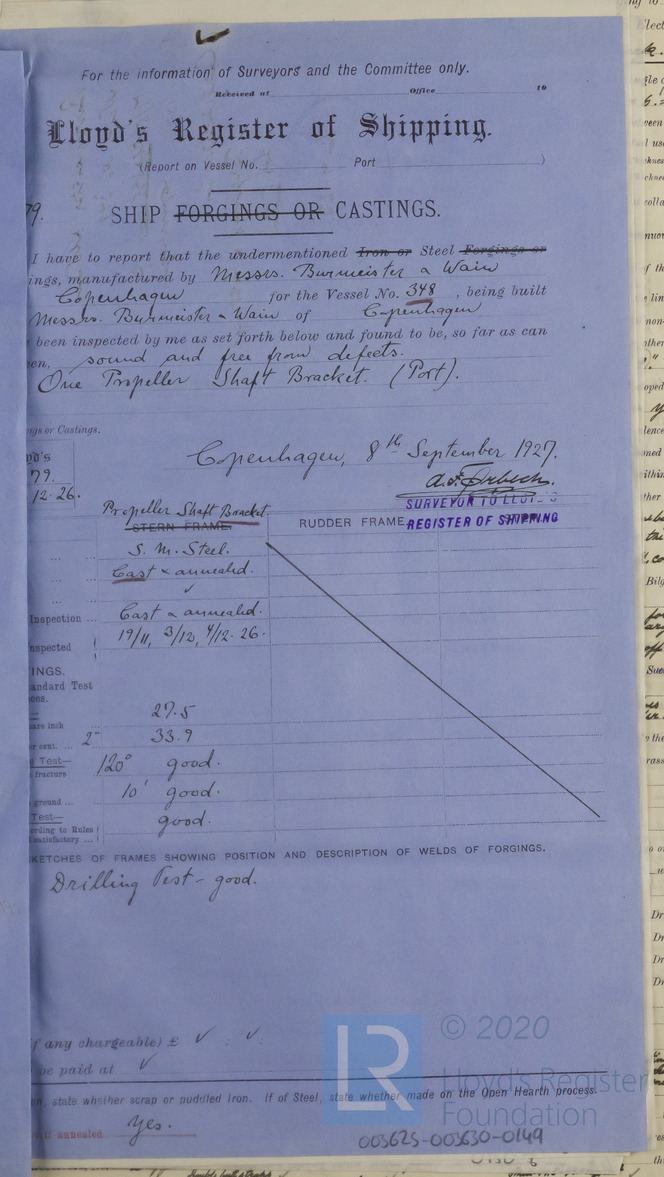 For the information of Surveyors and the Committee only.
Received at Office 19
Lloyd's Register of Shipping.
(Report on Vessel No. Port )
79.
SHIP FORGINGS OR CASTINGS.
I have to report that the undermentioned Iron or Steel Forgings or
ings, manufactured by Messrs. Burmeister & Wain
Copenhagen for the Vessel No. 348, being built
Messrs. Burmeister & Wain of Copenhagen
been inspected by me as set forth below and found to be, so far as can
en, sound and free from defects.
One Propeller Shaft Bracket. (Port).
ngs or Castings.
Copenhagen, 8th September 1927.
yd's
79.
12.26.
SURVEYOR TO LLOYD'S
REGISTER OF SHIPPING
Propeller Shaft Bracket.
STERN FRAME. RUDDER FRAME
S. M. Steel.
Cast & annealed.
Inspection ... Cast & annealed.
nspected 19/11, 3/12, 4/12. 26.
INGS.
andard Test
ces.
27.5
uare inch
er cent. ... 2" 33.9
g Test—
fracture 120° good.
10' good.
ground ...
Test—
ording to Rules good.
satisfactory ...
KETCHES OF FRAMES SHOWING POSITION AND DESCRIPTION OF WELDS OF FORGINGS.
Drilling Test - good.
if any chargeable) £ ✓ : ✓
be paid at ✓
n, state whether scrap or puddled Iron. If of Steel, state whether made on the Open Hearth process.
if annealed Yes.
LR
© 2020
Lloyd's Register
Foundation
003625-003630-0149